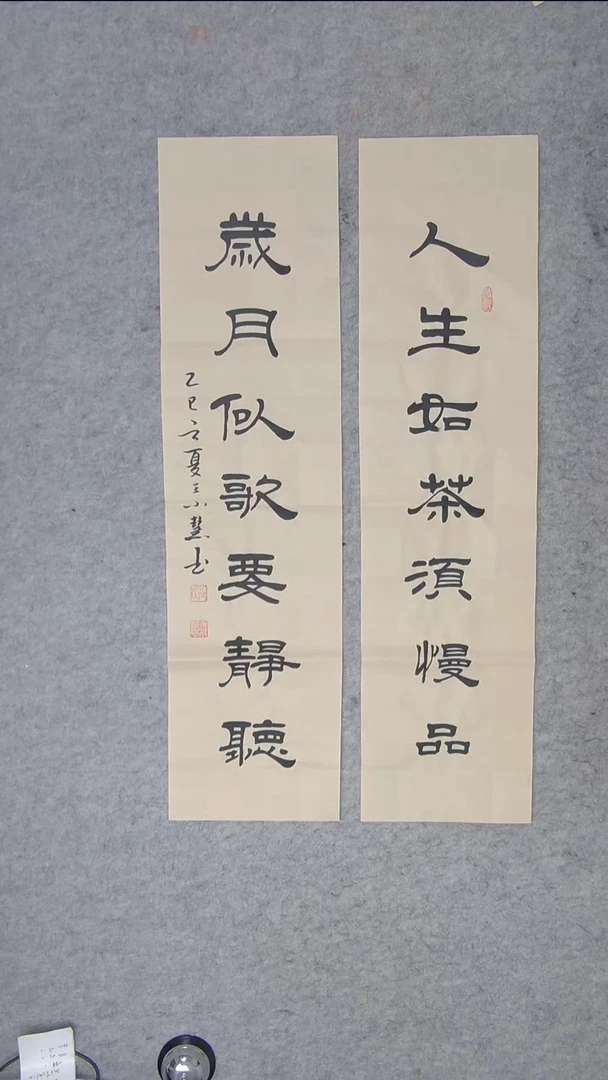 人生如茶須慢品
歲月似歌要靜聽
乙巳立夏王小慧书